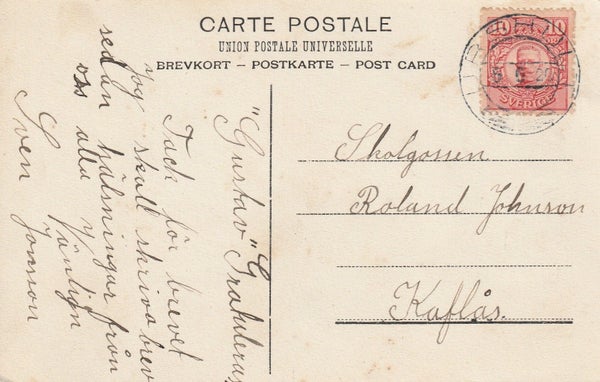 CARTE POSTALE
UNION POSTALE UNIVERSELLE
BREVKORT - POSTKARTE - POST CARD
10 10
SVERIGE
Skolgossen
Roland Johnson
Kaflås.
"Gustav"
Tack för brevet
jag skall skriva brev
sedan hälsningar från
oss alla
Vänligen
Sven Jonsson